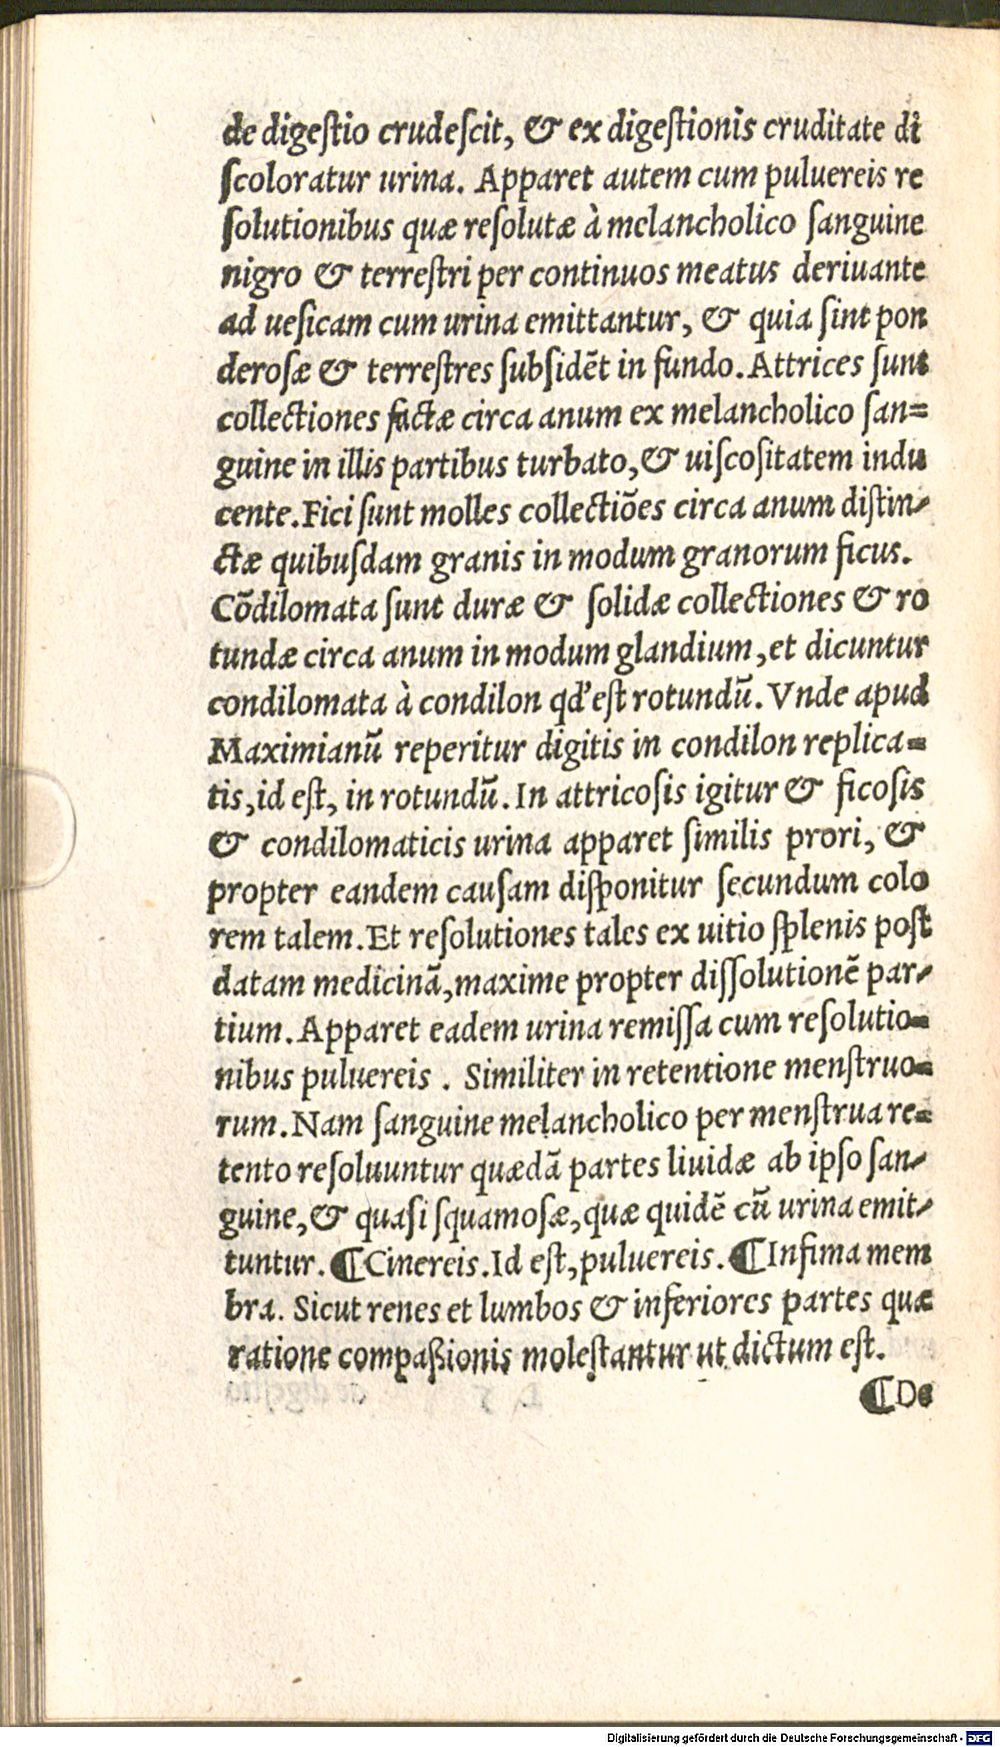 de digeſtio crudeſcit, & ex digeſtionis cruditate di
ſcoloratur urina. Apparet autem cum puluereis re
ſolutionibus quæ reſolutæ à melancholico ſanguine
nigro & terreſtri per continuos meatus deriuante
ad ueſicam cum urina emittantur, & quia ſint pon
deroſæ & terreſtres ſubſidēt in fundo. Attrices ſunt
collectiones factæ circa anum ex melancholico ſan=
guine in illis partibus turbato, & uiſcoſitatem indu
cente. Fici ſunt molles collectiōes circa anum diſtin-
ctæ quibuſdam granis in modum granorum ficus.
Cōdilomata ſunt duræ & ſolidæ collectiones & ro
tundæ circa anum in modum glandium, et dicuntur
condilomata à condilon qd' eſt rotundū. Vnde apud
Maximianū reperitur digitis in condilon replica=
tis, id eſt, in rotundū. In attricoſis igitur & ficoſis
& condilomaticis urina apparet ſimilis prori, &
propter eandem cauſam diſponitur ſecundum colo
rem talem. Et reſolutiones tales ex uitio ſplenis poſt
datam medicinā, maxime propter diſſolutionē par-
tium. Apparet eadem urina remiſſa cum reſolutio=
nibus puluereis . Similiter in retentione menſtruo=
rum. Nam ſanguine melancholico per menſtrua re=
tento reſoluuntur quædā partes liuidæ ab ipſo ſan-
guine, & quaſi ſquamoſæ, quæ quidē cū urina emit-
tuntur. ¶Cinereis. Id eſt, puluereis. ¶Infima mem
bra. Sicut renes et lumbos & inferiores partes quæ
ratione compaßionis moleſtantur ut dictum eſt.
¶De
Digitalisierung gefördert durch die Deutsche Forschungsgemeinschaft - DFG